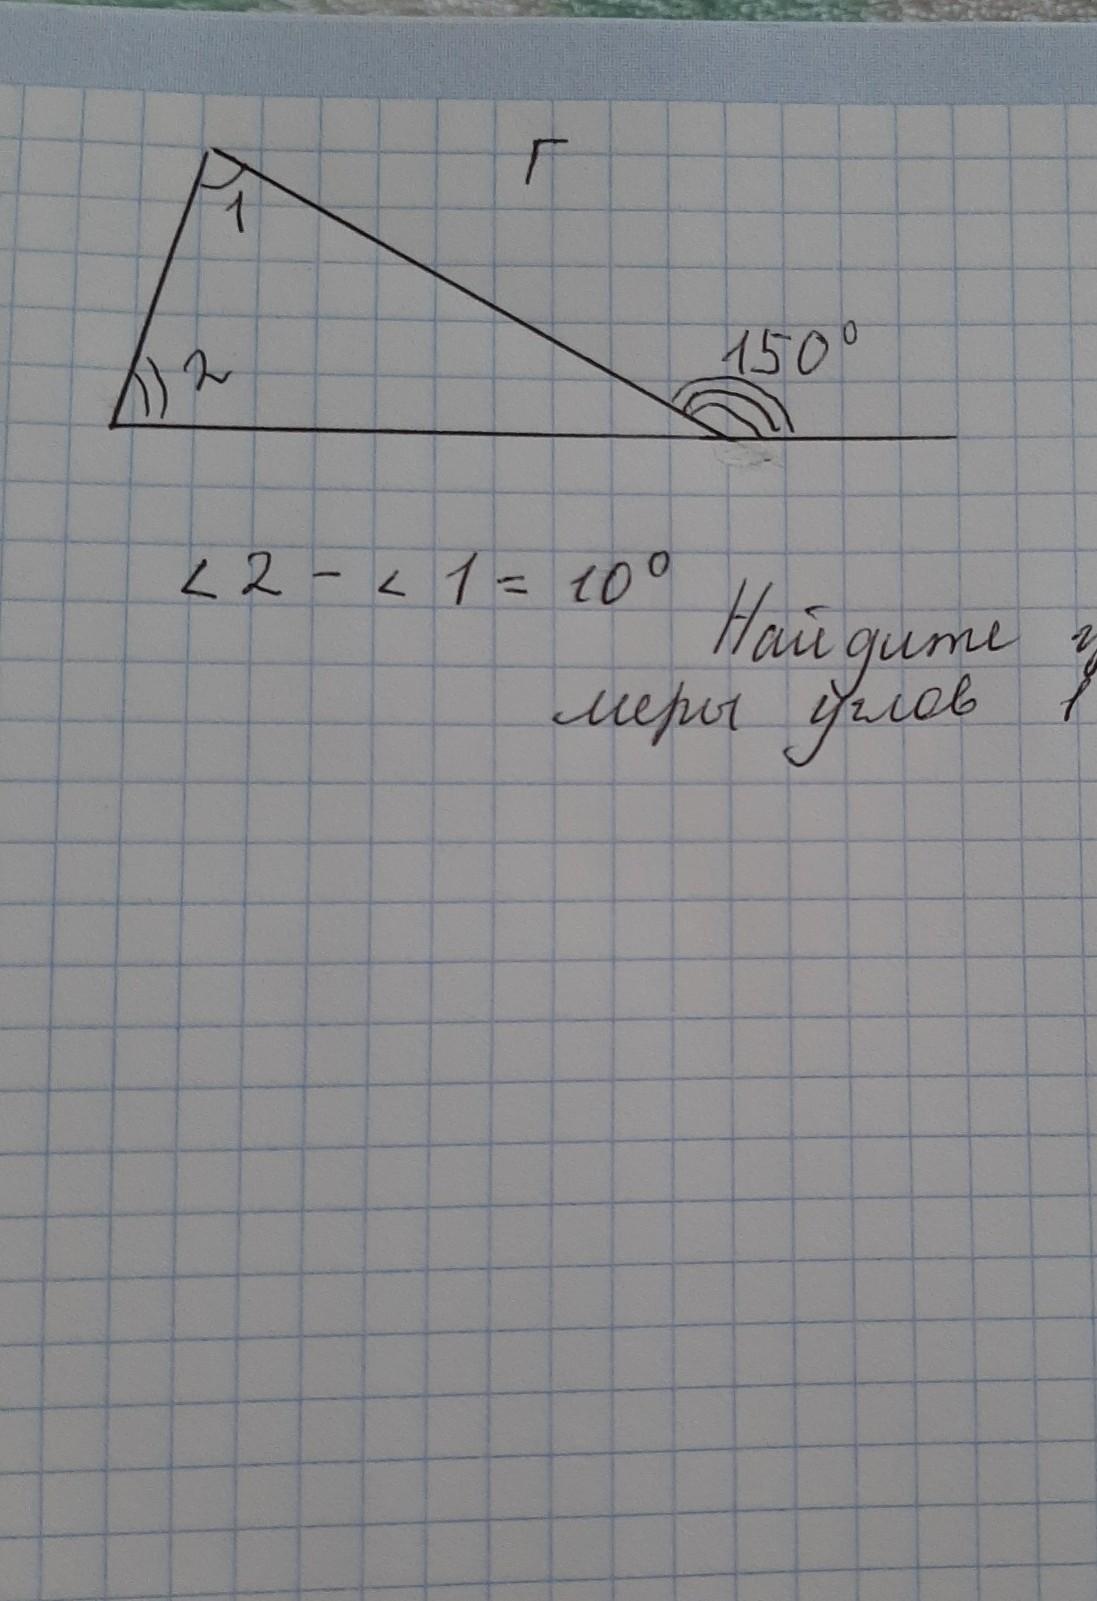 Г
1
150°
2
<2 - < 1 = 10°
Найдите
меры углов 1